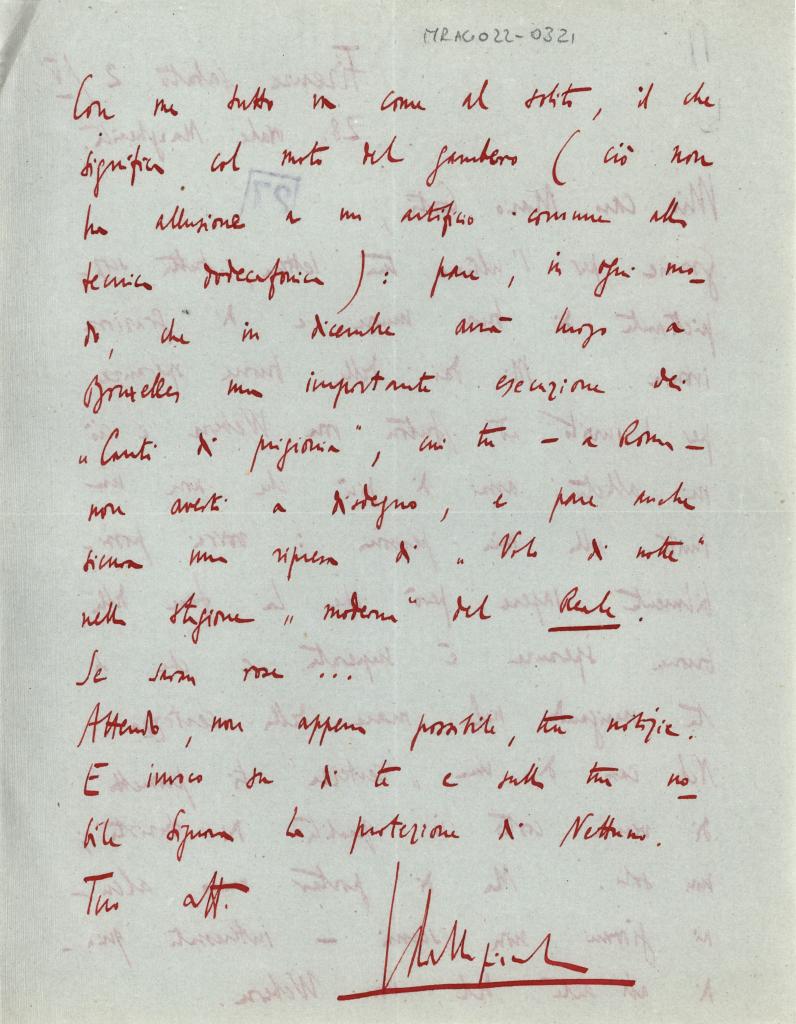 MRAG022-0321
Con me tutto va come al solito, il che
significa col moto del gambero (ciò non
ha allusione a un artificio comune alla
tecnica dodecafonica): pare, in ogni mo-
do, che in dicembre avrà luogo a
Bruxelles una importante esecuzione dei
"Canti di prigionia", cui tu – a Roma –
non avesti a disdegno, e pare anche
sicura una ripresa di "Volo di notte"
nella stagione "moderna" del Reale.
Se saran rose ...
Attendo, non appena possibile, tue notizie.
E invoco su di te e sulla tua no-
bile Signora la protezione di Nettuno.
Tuo aff.
LDallapiccola